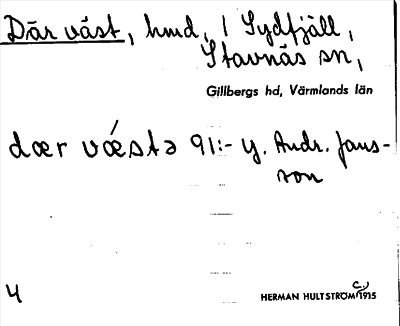 Där väst, hmd, i Sydfjäll,
Stavnäs sn,
Gillbergs hd, Värmlands län
dær vǽstə 91:- y. Andr. Jans-
son
4
HERMAN HULTSTRÖM c) 1915